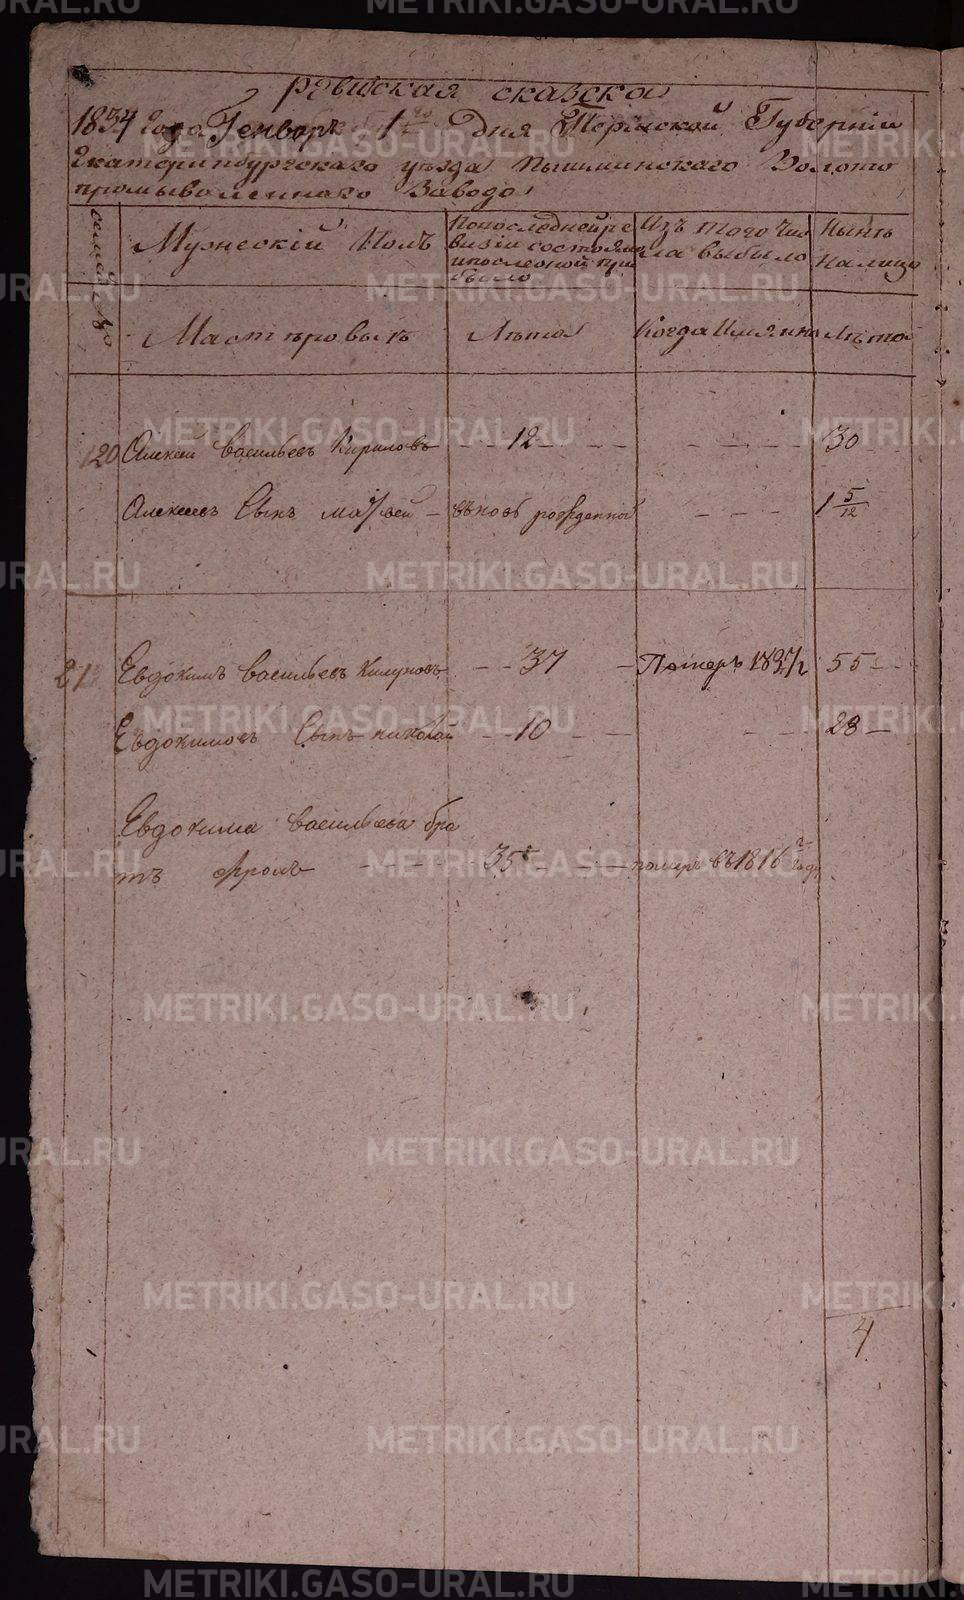 Ревижская сказска
1834 Года Генваря 1го Дня Пермской Губернiи
Екатеринбургскаго уезда Пышминскаго Золото
промываленнаго Завода
семей №
Мужескiй Полъ
Попоследней ре
визiи состояло
ипослеоной при
было
Изъ того Чис
ла выбыло
Ныне
налицо
Мастеровые
Лета
Когда Имянно
Лета
120 Алексей Васильевъ Кириловъ - - 12 - - - - - - 30
Алексеевъ Сынъ Матвей - вновь рожденной - - - 1 5/12
21 Евдокимъ Васильевъ - - 37 - Померъ 1837 55 -
Евдокимовъ Сынъ Николай - - 10 - - - - 28 -
Евдокима Васильева бра
тъ Фролъ - - - - 35 - - - померъ въ 1816 году
4
METRIKI.GASO-URAL.RU